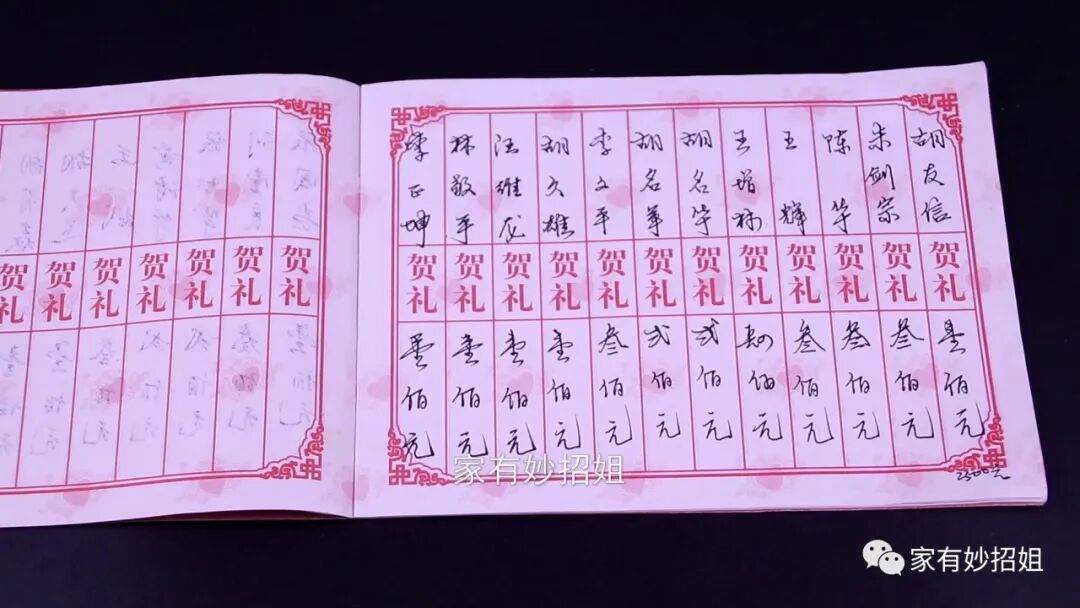 胡友信 贺礼 壹佰元
朱剑宗 贺礼 叁佰元
陈华 贺礼 叁佰元
王辉 贺礼 叁佰元
王增林 贺礼 肆佰元
胡名华 贺礼 弍佰元
胡名军 贺礼 弍佰元
李文平 贺礼 叁佰元
胡久雄 贺礼 壹佰元
汪维龙 贺礼 壹佰元
林敬平 贺礼 壹佰元
李正坤 贺礼 壹佰元
2500元
贺礼
贺礼
贺礼
贺礼
贺礼
贺礼
贺礼
家有妙招姐
家有妙招姐